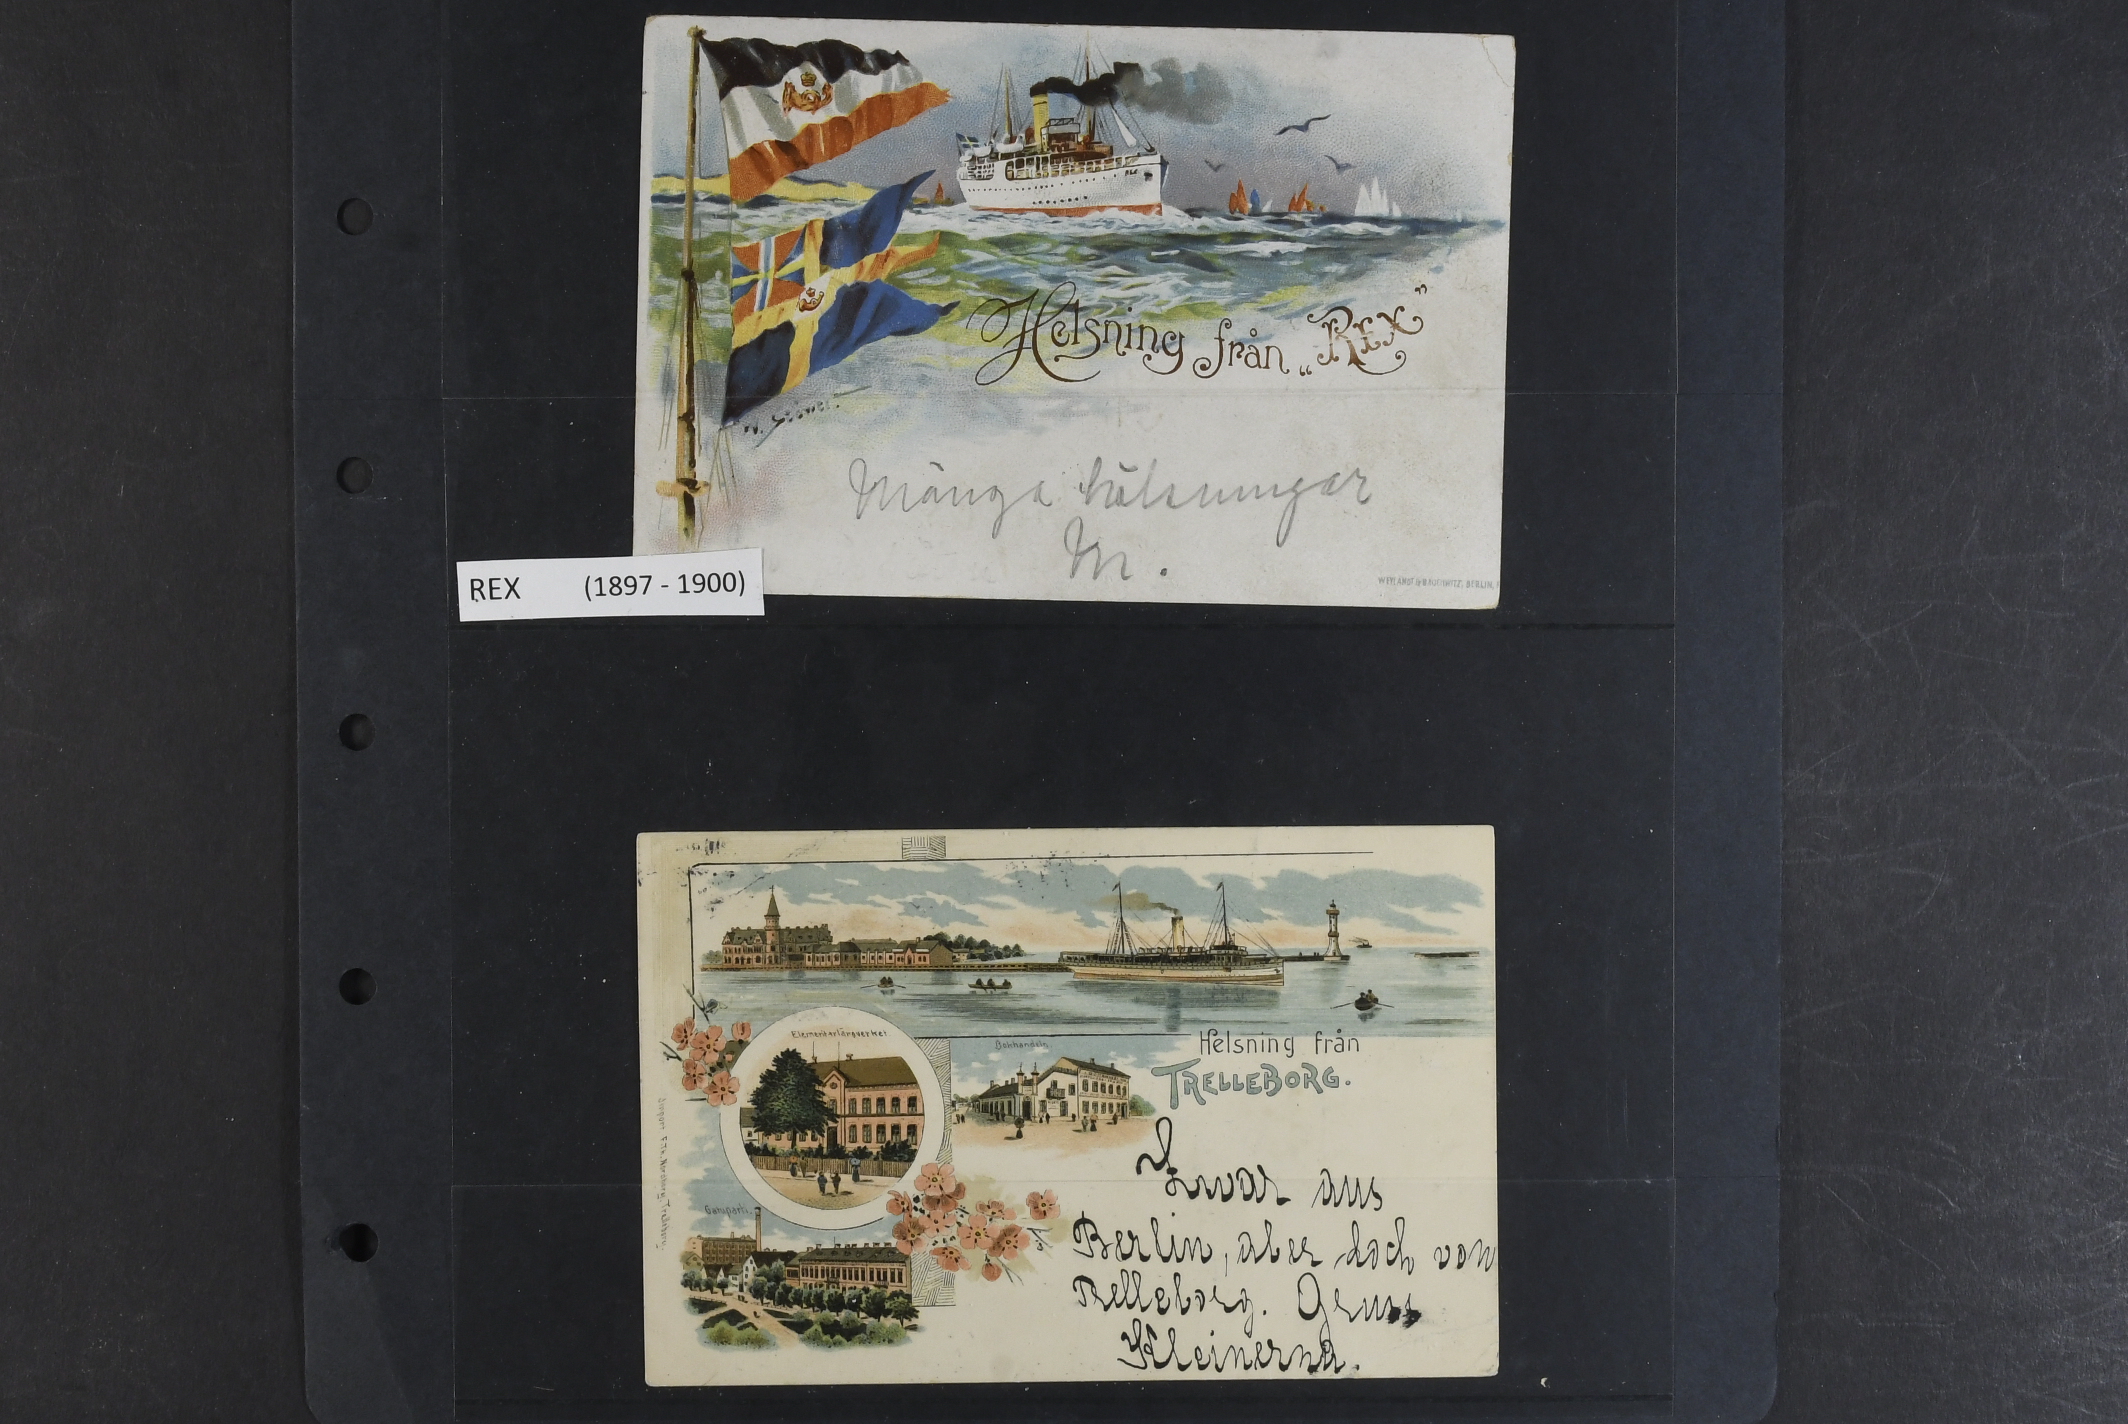 Helsning från „REX”
W. Stöwer.
Många hälsningar
M.
WEYLANDT & BAUCHWITZ, BERLIN,
REX (1897 - 1900)
Elementarläroverket
Bokhandeln.
Helsning från
TRELLEBORG.
Zwar aus
Berlin, aber doch von
Trelleborg. Gruss
Kleinerna.
Gatuparti.
Trelleborg.